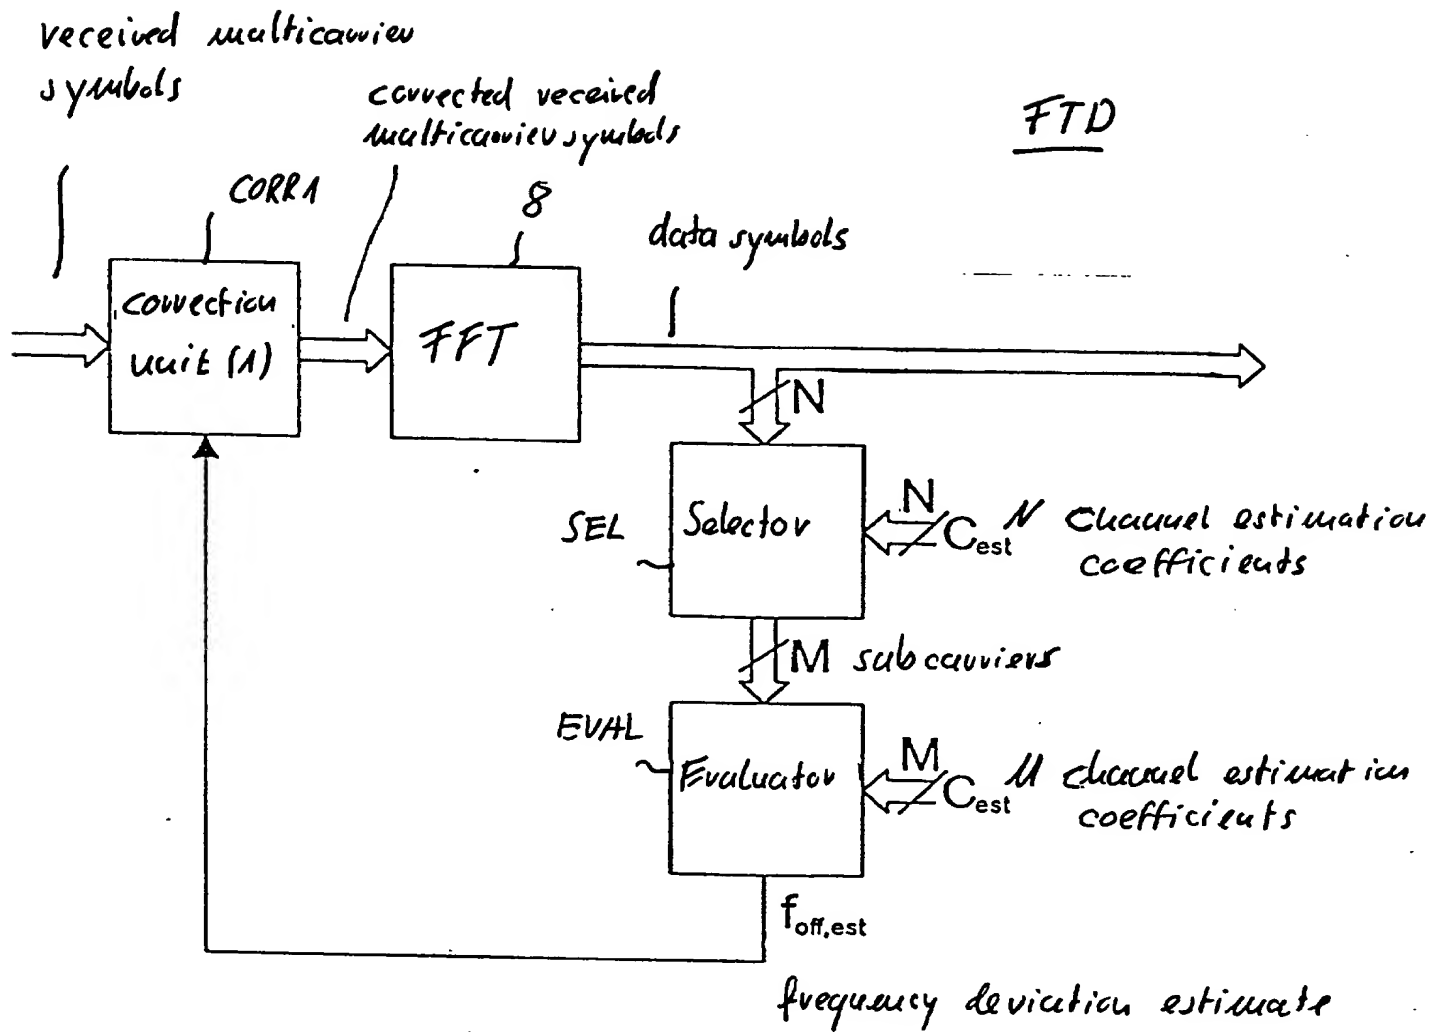 received multicarrier
symbols
corrected received
multicarrier symbols
FTD
CORR1
8
data symbols
correction
unit (1)
FFT
N
SEL
Selector
N
C_est
N channel estimation
coefficients
M subcarriers
EVAL
Evaluator
M
C_est
M channel estimation
coefficients
f_off,est
frequency deviation estimate